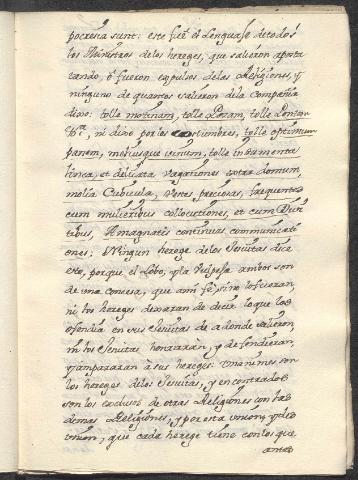 pocresia sunt: este fué el Lenguaje de todos
los Ministros de los hereges, que salieron aposta
tando, ò fueron expulsos de las Religiones, y
ninguno de quantos salieron de la Compañia
dixo: tolle
ni dixo por las costumbres, tolle optimum
panem, meliusque vinum, tolle
et delicata vagationes extra domum,
mollia Cubicula, vestes preciosas, frequentes
cum mulieribus collocutiones, et cum Divi
tibus, Amagnatis continuas communicati
ones; Ningun herege de los Jesuitas dice
esto, porque el Lobo, y la Vulpeja ambos son
de una conseja, que ami fé, si no lo fueran,
ni los hereges dexaran de decir lo que los
ofendia en sus Jesuitas de adonde salieron,
ni los Jesuitas honraran, y defendieran,
y ampararan à sus hereges: Unanimes son
los hereges de los Jesuitas, y encontrados
son los exclusos de otras Religiones con las
demas Religiones, y por esta union, y des
union, que cada herege tiene con los que
antes